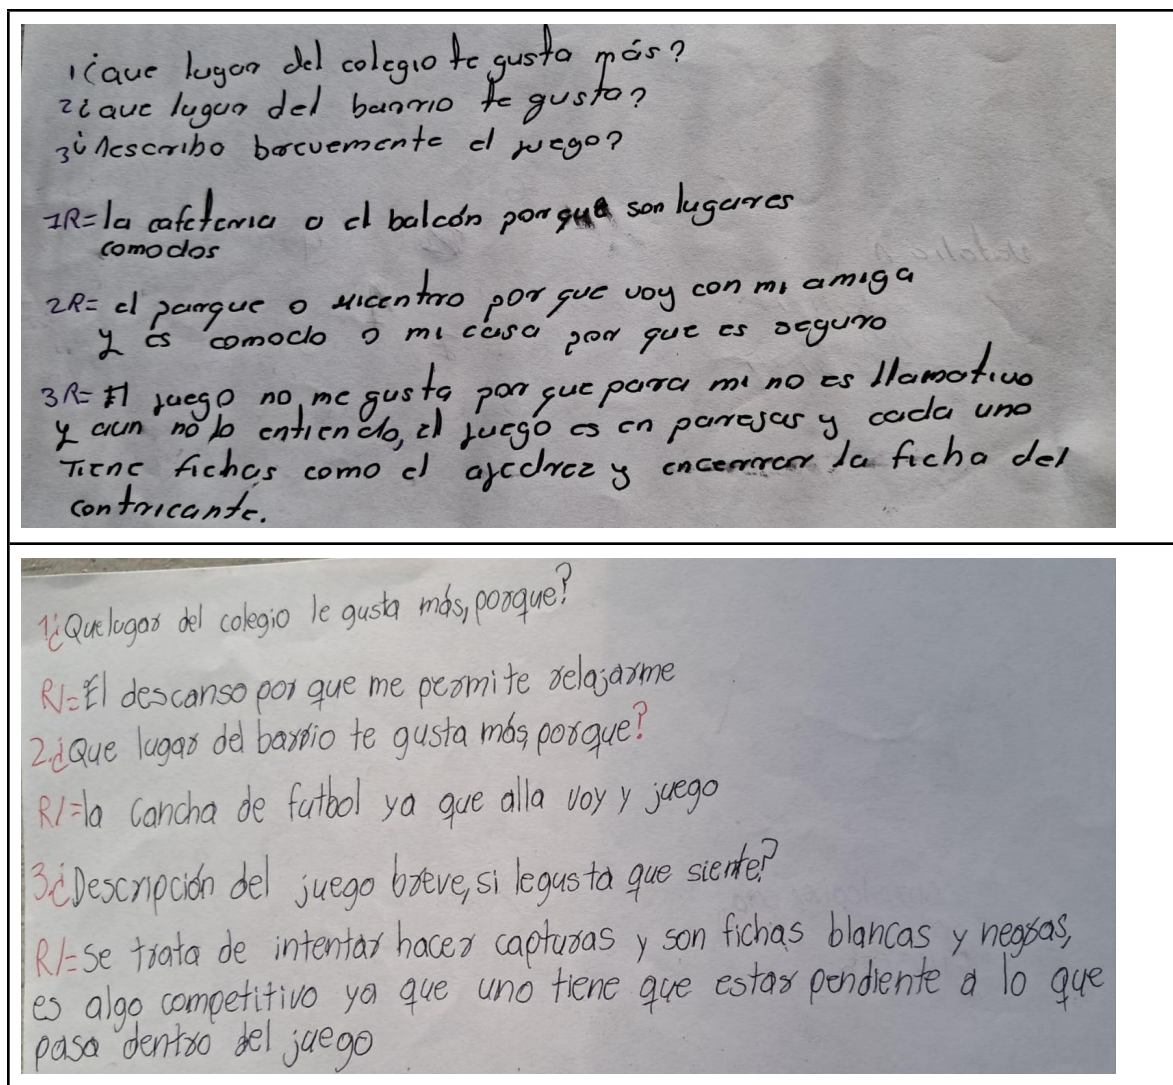 1¿que lugar del colegio te gusta más?
2¿que lugar del barrio te gusta?
3¿Describo brevemente el juego?
1R=la cafeteria o el balcón por que son lugares
comodos
2R= el parque o micentro por que voy con mi amiga
y es comodo o mi casa por que es seguro
3R= El juego no me gusta por que para mi no es llamativo
y aun no lo entiendo, el juego es en parejas y cada uno
Tiene fichas como el ajedrez y encerrar la ficha del
contricante.
1¿Que lugar del colegio le gusta más, porque?
R/=El descanso por que me permite relajarme
2.¿Que lugar del barrio te gusta más, porque?
R/=la cancha de futbol ya que alla voy y juego
3¿Descripción del juego breve, si le gusta que siente?
R/=se trata de intentar hacer capturas y son fichas blancas y negras,
es algo competitivo ya que uno tiene que estar pendiente a lo que
pasa dentro del juego